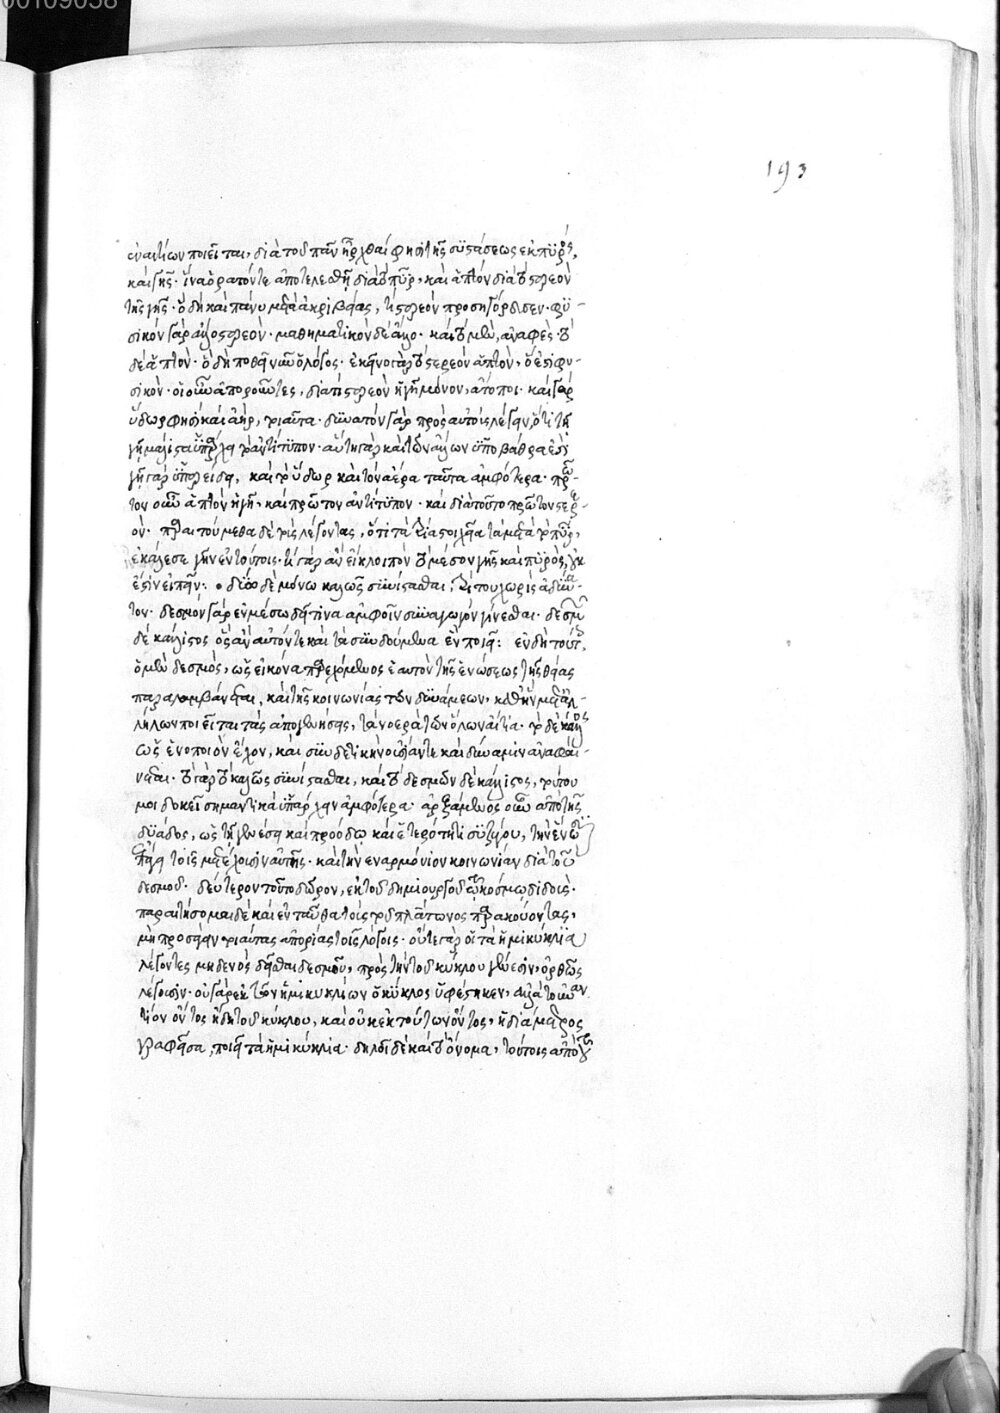 00109058
193
ἐναντίων ποιεῖται, διὰ τοῦ πᾶν ἦρχθαι φησὶ τῆς συστάσεως ἐκ πυρὸς,
καὶ γῆς· ἵνα ὁρατόν τε ἀποτελεσθῇ διὰ τὸ πῦρ, καὶ ἁπτὸν διὰ τὸ στερεὸν
τῆς γῆς· ὃ δὴ καὶ πάνυ μετὰ ἀκριβείας, τί στερεὸν προσηγόρευσεν· φυ-
σικὸν γὰρ ἄλλο στερεὸν· μαθηματικὸν δὲ ἄλλο· καὶ τὸ μὲν, ἀναφὲς· τὸ
δὲ ἁπτὸν· ὃ δὴ ποθεῖ νῦν ὁ λόγος· ἐκεῖνο γὰρ τὸ στερεὸν ἁπτὸν, ὅ ἐστι φυ-
σικὸν· οἱ οὖν ἀποροῦντες, διατί στερεὸν ἡ γῆ μόνον, ἄτοποι· καὶ γὰρ
ὕδωρ φησὶ καὶ ἀὴρ, τοιαῦτα· δυνατὸν γὰρ πρὸς αὐτοὺς λέγειν, ὅτι τῇ
γῇ μάλιστα ὑπάρχει τὸ ἀντίτυπον· αὕτη γὰρ καὶ τῶν ἄλλων ὑποβάθρα ἐστὶ
γῇ γὰρ ἐπερείδει, καὶ τὸ ὕδωρ καὶ τὸν ἀέρα ταῦτα ἀμφότερα· πρῶ-
τον οὖν ἁπτὸν ἡ γῆ, καὶ πρῶτον ἀντίτυπον· καὶ διὰ τοῦτο πρῶτον στερε-
ὸν· παραιτούμεθα δὲ τοὺς λέγοντας, ὅτι τὰ τρία στοιχεῖα τὰ μετὰ τὸ πῦρ,
ἐκάλεσε γῆν ἐν τούτοις· τί γὰρ ἂν εἴη λοιπὸν τὸ μέσον γῆς καὶ πυρὸς, οὐκ
ἔστιν εἰπεῖν: δύο δὲ μόνω καλῶς συνίστασθαι, τρίτου χωρὶς ἀδύνα-
τον· δεσμὸν γὰρ ἐν μέσῳ δεῖ τινα ἀμφοῖν συναγωγὸν γίνεσθαι· δεσμῶν
δὲ κάλλιστος ὃς ἂν αὐτόν τε καὶ τὰ συνδούμενα ἓν ποιῇ: ἐν δὴ τούτοις,
ὁ μὲν δεσμὸς, ὡς εἰκόνα παρεχόμενος ἑαυτὸν τῆς ἑνώσεως τῆς θείας
παραλαμβάνεται, καὶ τῆς κοινωνίας τῶν δυνάμεων, καθ' ἣν μετ' ἀλ-
λήλων ποιεῖται τὰς ἀπογεννήσεις, τὰ νοερὰ τῶν ὅλων αἴτια· τὸ δὲ καλ-
ῶς ἑνοποιὸν ἔχον, καὶ συνδετικὴν οὐσίαν τε καὶ δύναμιν ἀναφαί-
νεται· τὸ γὰρ τὸ καλῶς συνίστασθαι, καὶ τὸ δεσμῶν δὲ κάλλιστος, τούτου
μοι δοκεῖ σημαντικὰ ὑπάρχειν ἀμφότερα· ἀρξάμενος οὖν ἀπὸ τῆς
δυάδος, ὡς τῇ γενέσει καὶ προόδῳ καὶ ἑτερότητι συζύγου, τὴν ἕνωσιν
ἐπάγει τοῖς μετέχουσιν αὐτῆς· καὶ τὴν ἐναρμόνιον κοινωνίαν διὰ τοῦ
δεσμοῦ· δεύτερον τοῦτο δῶρον, ἐκ τοῦ δημιουργοῦ τῷ κόσμῳ διδούς·
παραιτήσομαι δὲ καὶ ἐνταῦθα τοὺς τοῦ πλάτωνος παρακούοντας,
μὴ προσάγειν τοιαύτας ἀπορίας τοῖς λόγοις· οὔτε γὰρ οἱ τὰ ἡμικύκλια
λέγοντες μηδενὸς δεῖσθαι δεσμοῦ, πρὸς τὴν τοῦ κύκλου γένεσιν, ὀρθῶς
λέγουσιν· οὐ γὰρ ἐκ τῶν ἡμικυκλίων ὁ κύκλος ὑφέστηκεν, ἀλλὰ τοὐναν-
τίον ὄντος ἤδη τοῦ κύκλου, καὶ οὐκ ἐκ τούτων ὄντος, ἡ διάμετρος
γραφεῖσα, ποιεῖ τὰ ἡμικύκλια· δηλοῖ δὲ καὶ τὸ ὄνομα, τούτοις ἀπὸ τοῦ